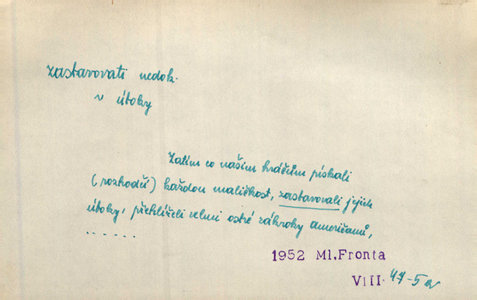 zastavovati nedok.
v útoky
Zatím co našim hráčům pískali
(rozhodčí) každou maličkost, zastavovali jejich
útoky, přehlíželi velmi ostré zákroky Američanů,
......
1952 Ml.Fronta
VIII. 47-5a